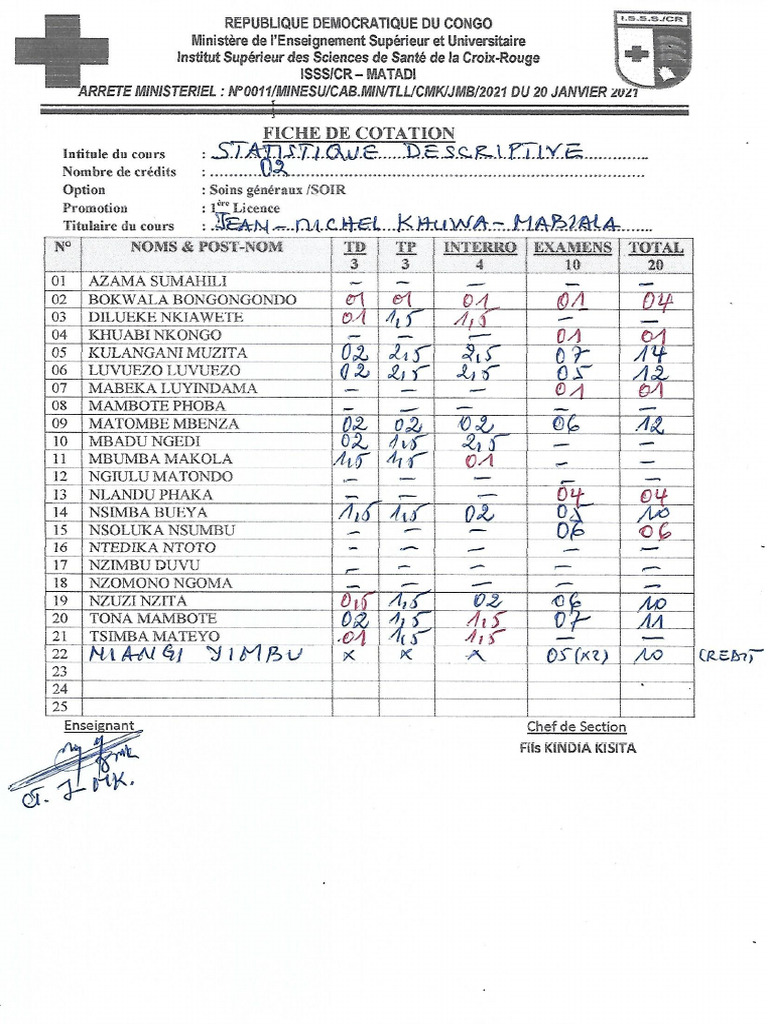 I.S.S.S/CR
REPUBLIQUE DEMOCRATIQUE DU CONGO
Ministère de l'Enseignement Supérieur et Universitaire
Institut Supérieur des Sciences de Santé de la Croix-Rouge
ISSS/CR – MATADI
ARRETE MINISTERIEL : N°0011/MINESU/CAB.MIN/TLL/CMK/JMB/2021 DU 20 JANVIER 2021
FICHE DE COTATION
Intitule du cours : STATISTIQUE DESCRIPTIVE
Nombre de crédits : 02
Option : Soins généraux /SOIR
Promotion : 1ère Licence
Titulaire du cours : JEAN-MICHEL KHUWA-MABIALA
N° NOMS & POST-NOM TD TP INTERRO EXAMENS TOTAL
3 3 4 10 20
01 AZAMA SUMAHILI – – – – –
02 BOKWALA BONGONGONDO 01 01 01 01 04
03 DILUEKE NKIAWETE 01 1,5 1,5 – –
04 KHUABI NKONGO – – – 01 01
05 KULANGANI MUZITA 02 2,5 2,5 07 14
06 LUVUEZO LUVUEZO 02 2,5 2,5 05 12
07 MABEKA LUYINDAMA – – – 01 01
08 MAMBOTE PHOBA – – – – –
09 MATOMBE MBENZA 02 02 02 06 12
10 MBADU NGEDI 02 1,5 2,5 – –
11 MBUMBA MAKOLA 1,5 1,5 01 – –
12 NGIULU MATONDO – – – – –
13 NLANDU PHAKA – – – 04 04
14 NSIMBA BUEYA 1,5 1,5 02 05 10
15 NSOLUKA NSUMBU – – – 06 06
16 NTEDIKA NTOTO – – – – –
17 NZIMBU DUVU – – – – –
18 NZOMONO NGOMA – – – – –
19 NZUZI NZITA 0,5 1,5 02 06 10
20 TONA MAMBOTE 02 1,5 1,5 07 11
21 TSIMBA MATEYO 01 1,5 1,5 – –
22 NIANGI YIMBU x x x 05 (x2) 10 CREDIT
23
24
25
Enseignant Chef de Section
Fils KINDIA KISITA